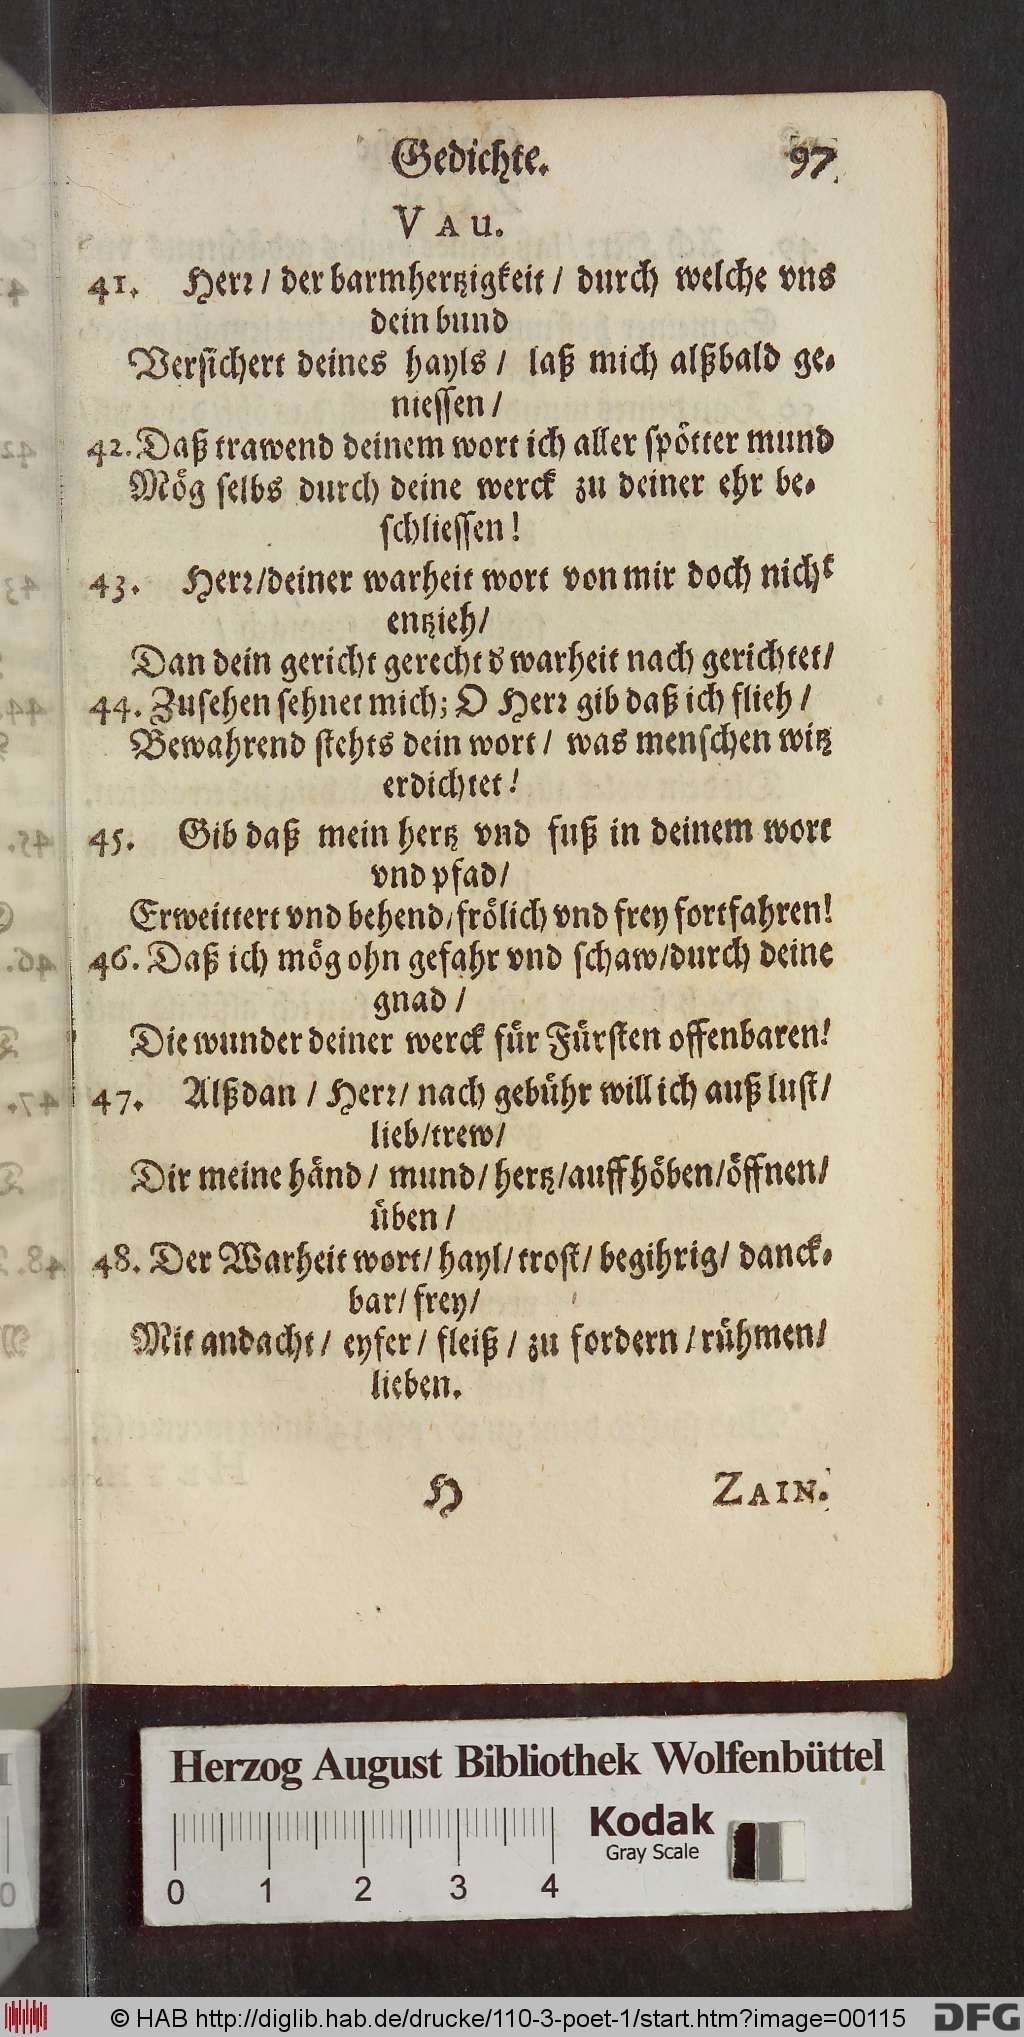 Gedichte. 97
Vau.
41. Herr / der barmhertzigkeit / durch welche vns
dein bund
Versichert deines hayls / laß mich alßbald ge-
niessen /
42. Daß trawend deinem wort ich aller spötter mund
Mög selbs durch deine werck zu deiner ehr be-
schliessen!
43. Herr/deiner warheit wort von mir doch nicht
entzieh/
Dan dein gericht gerecht d warheit nach gerichtet/
44. Zusehen sehnet mich; O Herr gib daß ich flieh /
Bewahrend stehts dein wort / was menschen witz
erdichtet!
45. Gib daß mein hertz vnd fuß in deinem wort
vnd pfad/
Erweittert vnd behend/frölich vnd frey fortfahren!
46. Daß ich mög ohn gefahr vnd schaw/durch deine
gnad /
Die wunder deiner werck für Fürsten offenbaren!
47. Alßdan / Herr/ nach gebühr will ich auß lust/
lieb/trew/
Dir meine händ / mund/ hertz/auffhöben/öffnen/
üben /
48. Der Warheit wort/ hayl/ trost/ begihrig/ danck-
bar/ frey/
Mit andacht / eyfer / fleiß / zu fordern / rühmen/
lieben.
H ZAIN.
Herzog August Bibliothek Wolfenbüttel
Kodak
Gray Scale
0 1 2 3 4
© HAB http://diglib.hab.de/drucke/110-3-poet-1/start.htm?image=00115 DFG